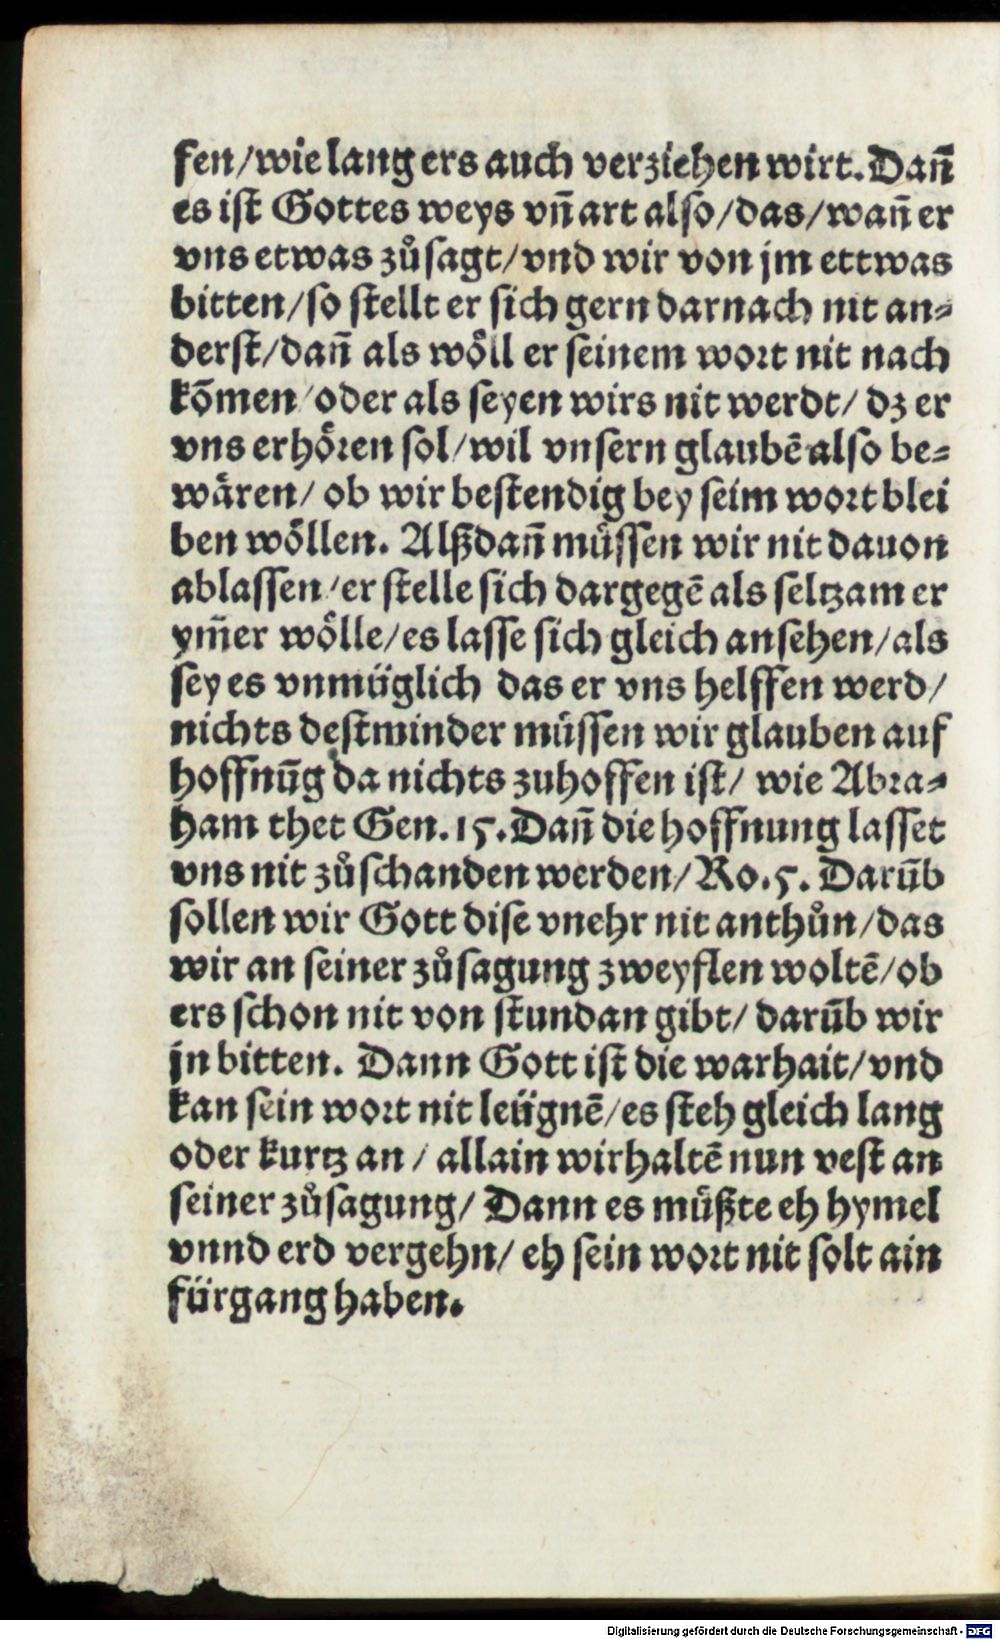 fen/wie lang ers auch verziehen wirt. Dañ
es ist Gottes weys vñ art also/das/wañ er
vns etwas zůsagt/vnd wir von jm ettwas
bitten/so stellt er sich gern darnach nit an⸗
derst/dañ als wöll er seinem wort nit nach
kōmen/oder als seyen wirs nit werdt/ dz er
vns erhören sol/wil vnsern glaubē also be⸗
wären/ ob wir bestendig bey seim wort blei
ben wöllen. Alßdañ müssen wir nit dauon
ablassen/er stelle sich dargegē als seltzam er
ym̄er wölle/es lasse sich gleich ansehen/als
sey es vnmüglich das er vns helffen werd/
nichts destminder müssen wir glauben auf
hoffnūg da nichts zuhoffen ist/ wie Abra⸗
ham thet Gen. 15. Dañ die hoffnung lasset
vns nit zůschanden werden/Ro. 5. Darūb
sollen wir Gott dise vnehr nit anthůn/das
wir an seiner zůsagung zweyflen woltē/ob
ers schon nit von stundan gibt/ darūb wir
jn bitten. Dann Gott ist die warhait/vnd
kan sein wort nit leügnē/es steh gleich lang
oder kurtz an/ allain wir haltē nun vest an
seiner zůsagung/ Dann es müßte eh hymel
vnnd erd vergehn/ eh sein wort nit solt ain
fürgang haben.
Digitalisierung gefördert durch die Deutsche Forschungsgemeinschaft - DFG